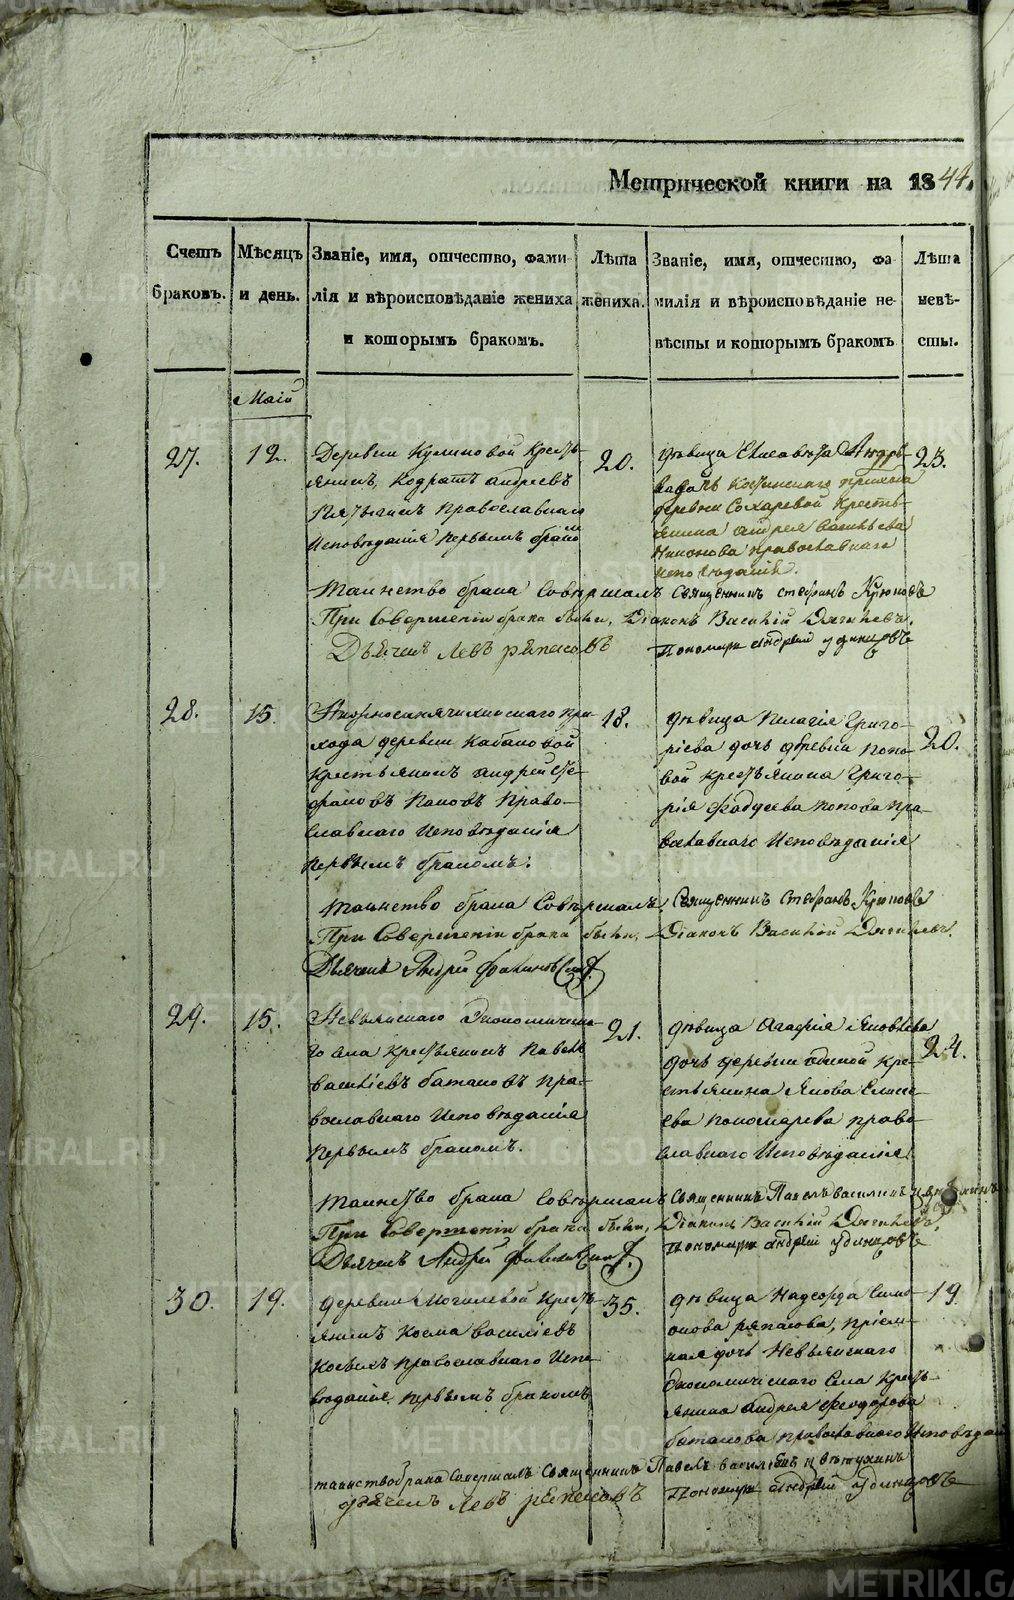 Метрической книги на 1844.
Счетъ браковъ.
Мѣсяцъ и день.
Званіе, имя, отчество, фами-
лія и вѣроисповѣданіе жениха
и которымъ бракомъ.
Лѣта
жениха.
Званіе, имя, отчество, фа-
милія и вѣроисповѣданіе не-
вѣсты и которымъ бракомъ
Лѣта
невѣ-
сты.
Маій
27.
12.
Деревни Кресть-
янинъ, Кодратъ Андреевъ
Православнаго
Исповѣданія первымъ бракомъ
20.
дѣвица Елисавета Андре-
прихода
деревни Сохаревой Кресть-
янина Андрея Васильева
Никонова православнаго
исповѣданія.
23.
Таинство брака Совершалъ Священникъ Стефанъ Крюковъ
При Совершеніи брака были, Діаконъ Василій Дягилевъ.
Дьячекъ Левъ Репасовъ
Пономарь Андрей Удинцовъ
28.
15.
при-
хода деревни Кабаковой
Крестьянинъ Андрей Сте-
фановъ Пановъ Право-
славнаго Исповѣданія
первымъ бракомъ.
18.
дѣвица Пелагія Григо-
ріева дочь деревни Попо-
вой крестьянина Григо-
рія Фадѣева Попова пра-
вославнаго Исповѣданія
20.
Таинство брака Совершалъ, Священникъ Стефанъ Крюковъ
При Совершеніи брака были, Діаконъ Василій Дягилевъ.
Дьячекъ Андрей
29.
15.
Невьянскаго Экономическа-
го села крестьянинъ Павелъ
Василіевъ Батаковъ пра-
вославнаго Исповѣданія
первымъ бракомъ.
21.
дѣвица Агафія Яковлева
дочь деревни кре-
стьянина Якова Елисе-
ева Пономарева право-
славнаго Исповѣданія
24.
Таинство брака Совершалъ Священникъ Павелъ Василіевъ
При Совершеніи брака были, Діаконъ Василій Дягилевъ,
Дьячекъ Андрей
Пономарь Андрей Удинцовъ
30.
19.
деревни Могилевой Кресть-
янинъ Косма Василіевъ
православнаго Испо-
вѣданія, первымъ бракомъ
35.
дѣвица Надежда Симо-
нова Репасова, пріем-
ная дочь Невьянскаго
Экономическаго Села Кресть-
янина Андрея Феодорова
Батакова православнаго Исповѣдан
19
таинство брака Совершалъ Священникъ Павелъ Василіевъ
Дьячекъ Левъ Репасовъ
Пономарь Андрей Удинцовъ
METRIKI.GASO-URAL.RU